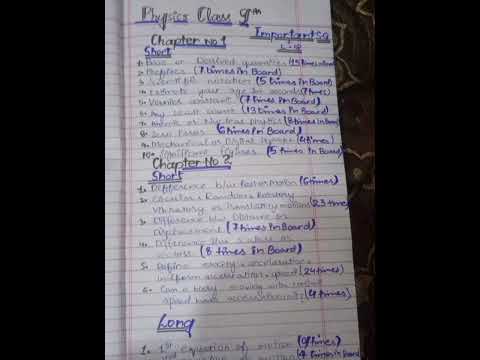 Physics Class 9th
Important SQ
L.Q
Chapter No 1
Short
1- Base or Derived quantities (15 times in Board)
2- Prefixes (7 times in Board)
3- Scientific notation (5 times in Board)
4- Estimate your age in seconds (7 times)
5- Vernier constant (7 times in Board)
6- Any least count (13 times in Board)
7- or Nuclear physics (8 times in Board)
8- Zero (6 times in Board)
9- Mechanical or Digital (4 times)
10- Significant figures (5 times in Board)
Chapter No 2
Short
1- Difference b/w motion (6 times)
2- Circular, Random, Rotatory
Vibratory or Translatory motion (23 times)
3- Difference b/w Distance or
Displacement (7 times in Board)
4- Difference b/w scalar or
vector (8 times in Board)
5- Define velocity, acceleration,
uniform acceleration, speed (24 times)
6- Can a body moving with
speed have acceleration (4 times)
Long
1- 1st equation of motion (9 times)
equation of motion (4 times in Board